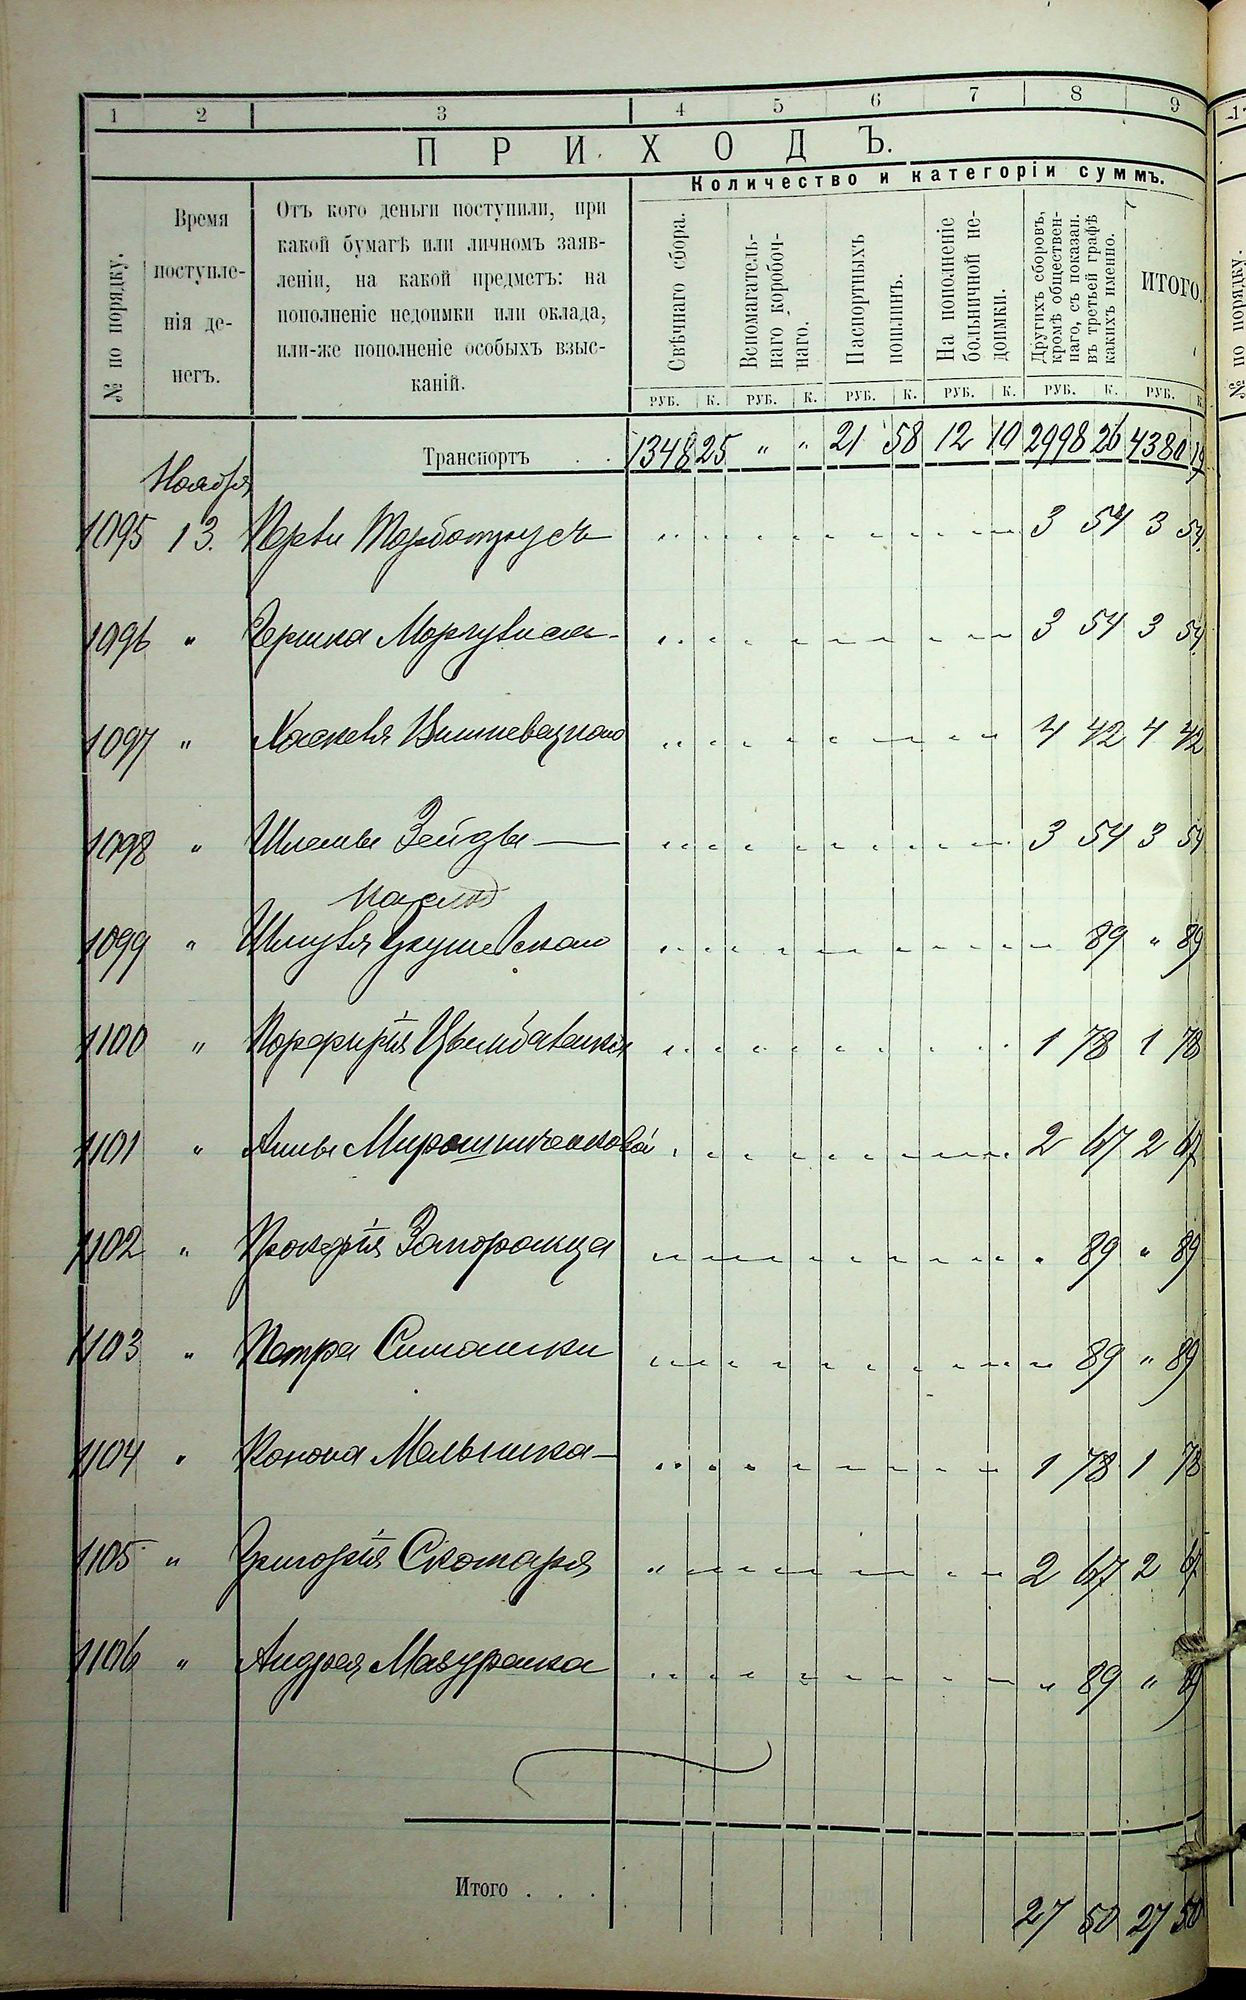 1 2 3 4 5 6 7 8 9
ПРИХОДЪ.
Количество и категоріи суммъ.
№ по порядку.
Время
поступле-
нія де-
негъ.
Отъ кого деньги поступили, при
какой бумагѣ или личномъ заяв-
леніи, на какой предметъ: на
пополненіе недоимки или оклада,
или-же пополненіе особыхъ взыс-
каній.
Свѣчнаго сбора.
Вспомагатель-
наго коробоч-
наго.
Паспортныхъ
пошлинъ.
На пополненіе
больничной не-
доимки.
Другихъ сборовъ,
кромѣ обществен-
наго, съ показан.
въ третьей графѣ
какихъ именно.
ИТОГО.
РУБ. К. РУБ. К. РУБ. К. РУБ. К. РУБ. К. РУБ. К
Транспортъ . . 1348 25 " " 21 58 12 10 2998 26 4380 19
Ноября
1095 13. 3 54 3 54.
1096 " 3 54 3 54
1097 " Хаскеля Вишневацкаго 4 42 4 42
1098 " Шлемы Зейды 3 54 3 54
1099 " Шмуля 89 " 89
1100 " Порфирія 1 78 1 78
1101 " Анны Мирошниченковой 2 67 2 67
1102 " Прокофія Запорожца " 89 " 89
1103 " Петра Симашки 89 " 89
1104 " Конона Мельника 1 78 1 78
1105 " Григорія Скотаря " 2 67 2 67
1106 " Андрея Мазуренка " 89 " 89
Итого . . . 27 50 27 50